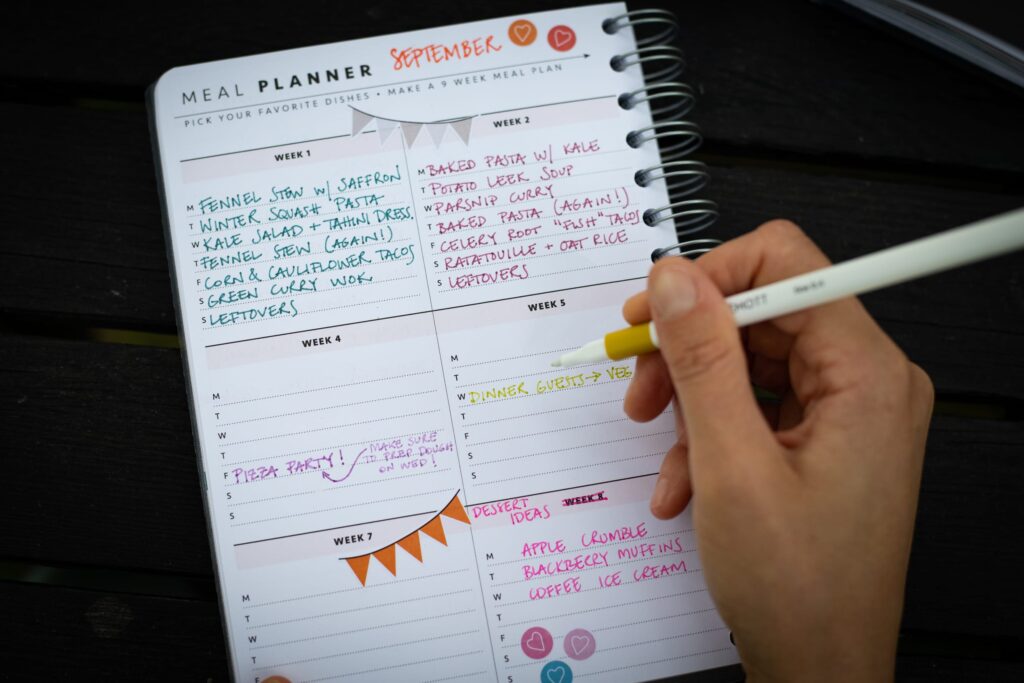 MEAL PLANNER SEPTEMBER
PICK YOUR FAVORITE DISHES • MAKE A 9 WEEK MEAL PLAN
WEEK 1
M FENNEL STEW W/ SAFFRON
T WINTER SQUASH PASTA
W KALE SALAD + TAHINI DRESS.
T FENNEL STEW (AGAIN!)
F CORN & CAULIFLOWER TACOS
S GREEN CURRY WOK
S LEFTOVERS
WEEK 2
M BAKED PASTA W/ KALE
T POTATO LEEK SOUP
W PARSNIP CURRY
T BAKED PASTA (AGAIN!)
F CELERY ROOT "FISH" TACOS
S RATATOUILLE + OAT RICE
S LEFTOVERS
WEEK 4
M
T
W
T
F PIZZA PARTY!
MAKE SURE
TO PREP DOUGH
ON WED!
S
S
WEEK 5
M
T
W DINNER GUESTS → VEG
T
F
S
S
WEEK 7
M
T
W
T
DESSERT
IDEAS
WEEK 8
M APPLE CRUMBLE
T BLACKBERRY MUFFINS
W COFFEE ICE CREAM
T
F
S
S